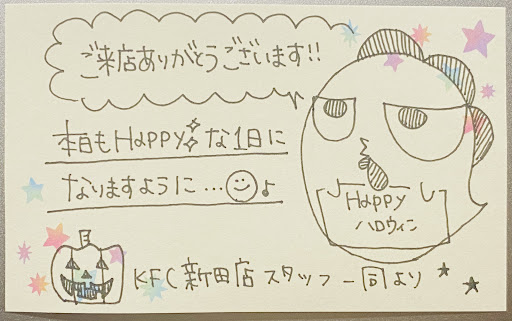 ご来店ありがとうございます!!
本日もHAPPYな1日に
なりますように…♪
HAPPY
ハロウィン
KFC新田店スタッフ一同より